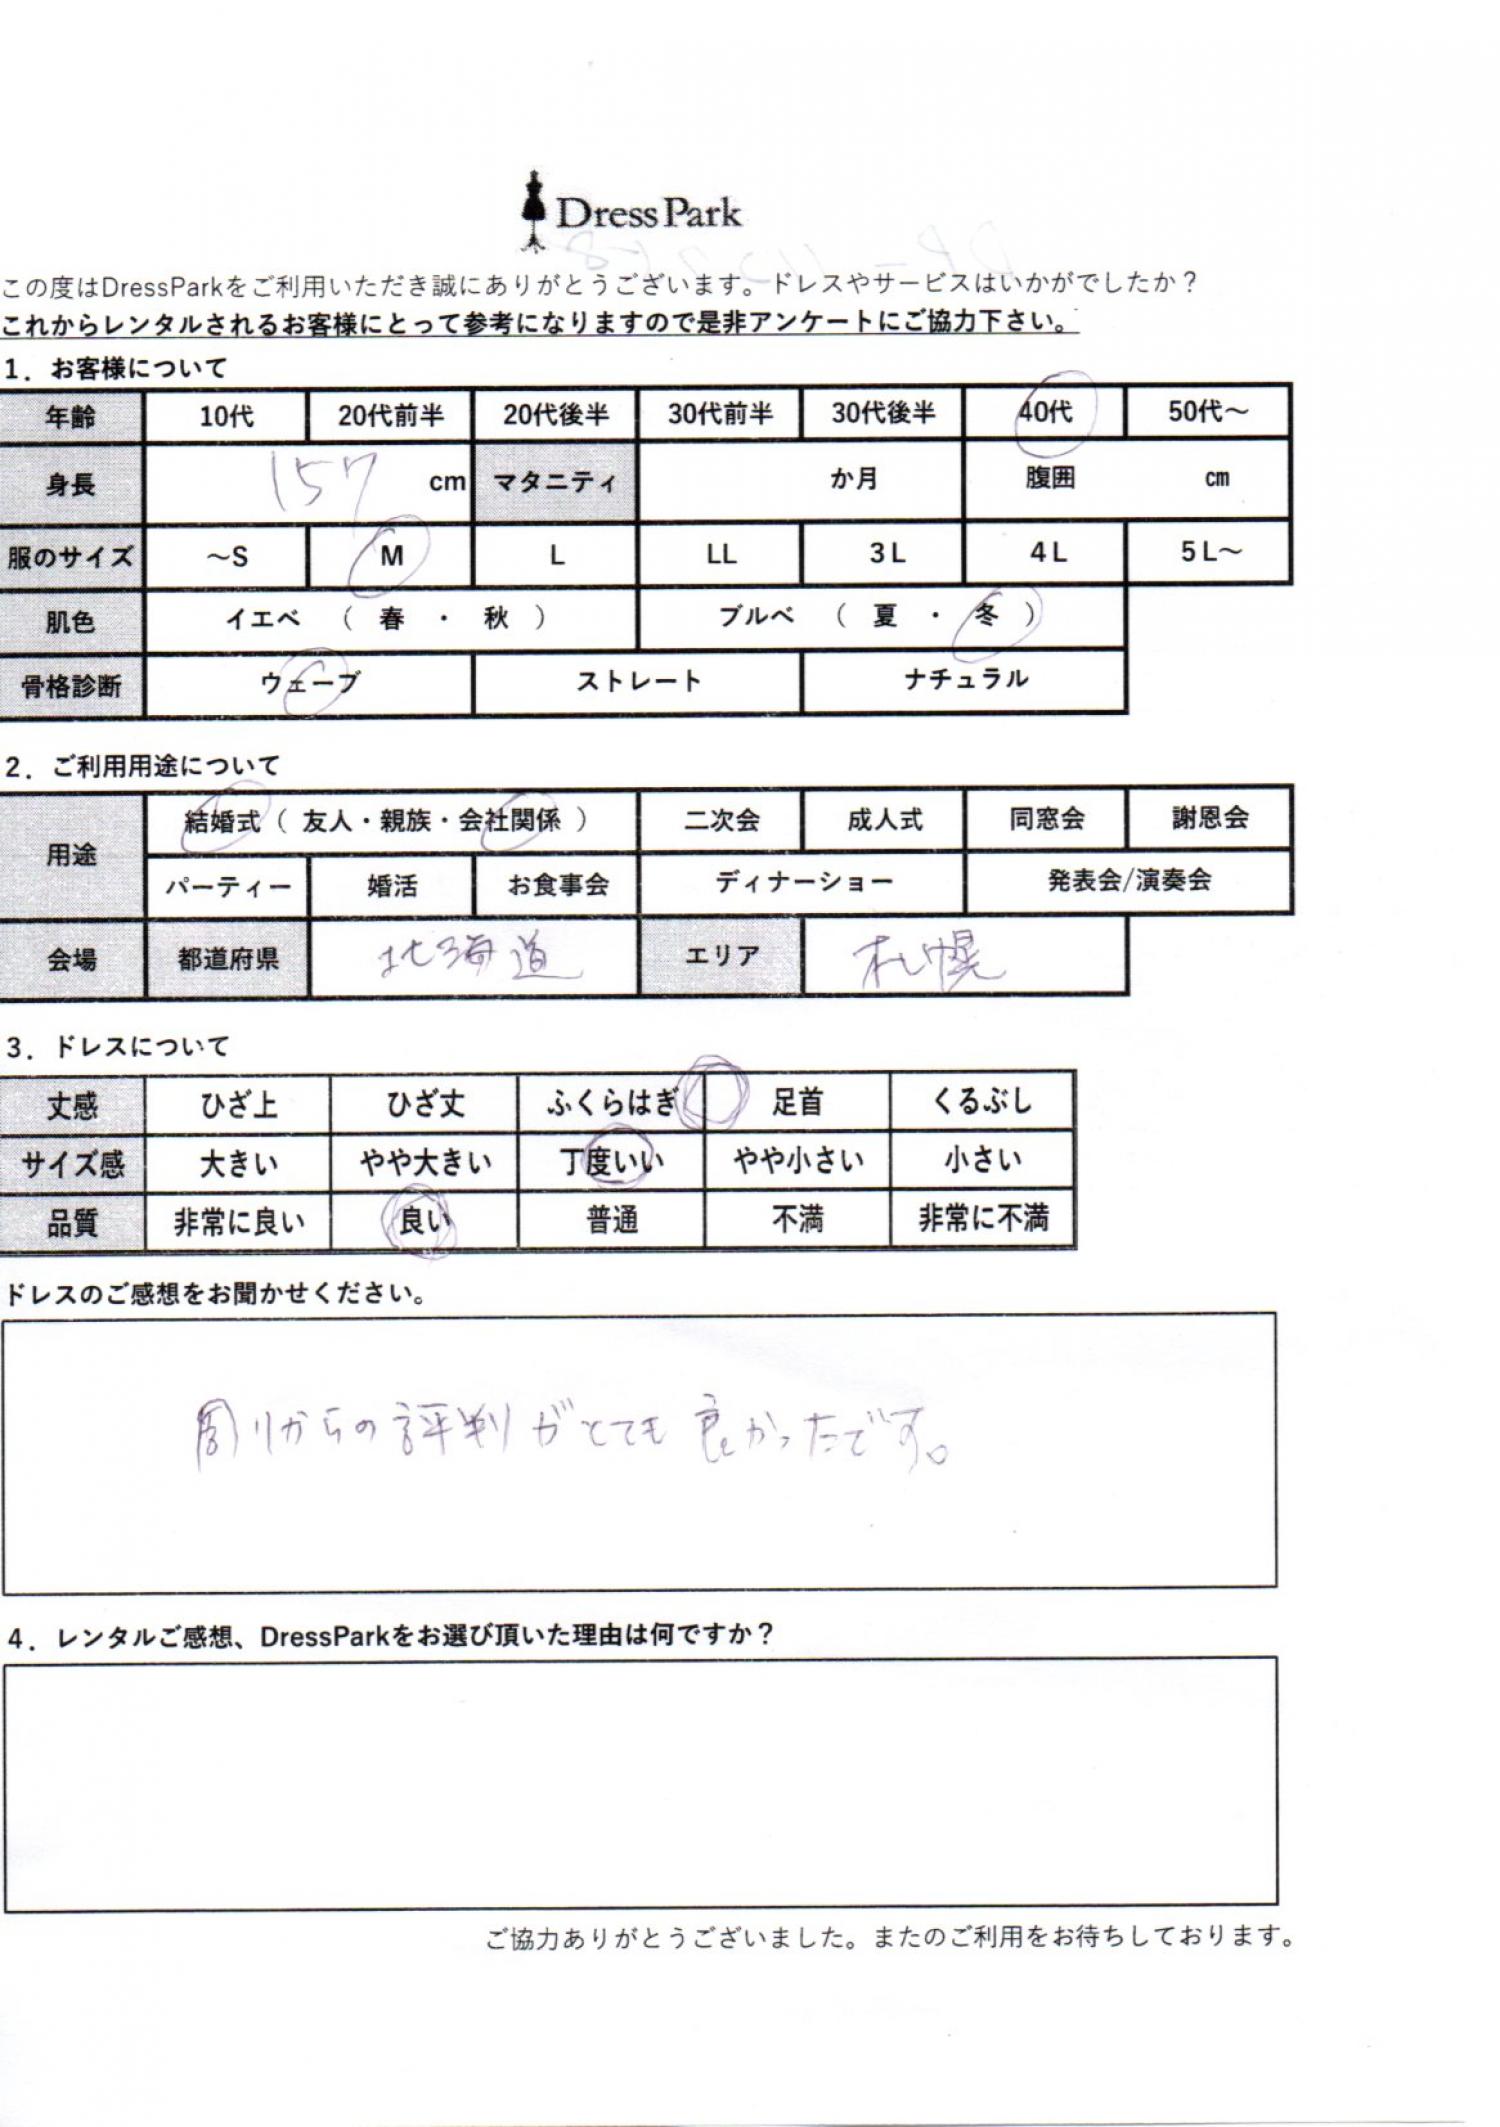 Dress Park
この度はDressParkをご利用いただき誠にありがとうございます。ドレスやサービスはいかがでしたか？
これからレンタルされるお客様にとって参考になりますので是非アンケートにご協力下さい。
1．お客様について
年齢 10代 20代前半 20代後半 30代前半 30代後半 40代 50代～
身長 157 cm マタニティ か月 腹囲 cm
服のサイズ ～S M L LL 3L 4L 5L～
肌色 イエベ （ 春 ・ 秋 ） ブルベ （ 夏 ・ 冬 ）
骨格診断 ウェーブ ストレート ナチュラル
2．ご利用用途について
用途 結婚式（ 友人・親族・会社関係 ） 二次会 成人式 同窓会 謝恩会
パーティー 婚活 お食事会 ディナーショー 発表会/演奏会
会場 都道府県 北海道 エリア 札幌
3．ドレスについて
丈感 ひざ上 ひざ丈 ふくらはぎ 足首 くるぶし
サイズ感 大きい やや大きい 丁度いい やや小さい 小さい
品質 非常に良い 良い 普通 不満 非常に不満
ドレスのご感想をお聞かせください。
周りからの評判がとても良かったです。
4．レンタルご感想、DressParkをお選び頂いた理由は何ですか？
ご協力ありがとうございました。またのご利用をお待ちしております。